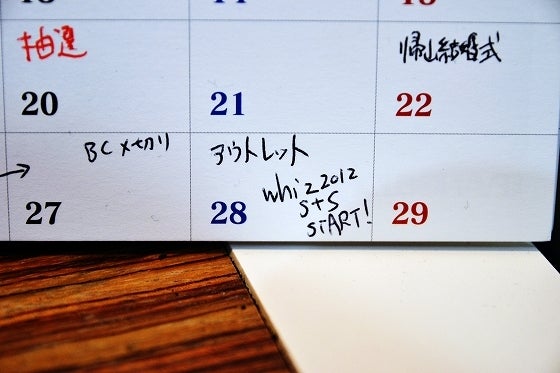 抽選
帰山結婚式
20 21 22
BC〆切り
アウトレット
whiz2012
S+S
START!
27 28 29